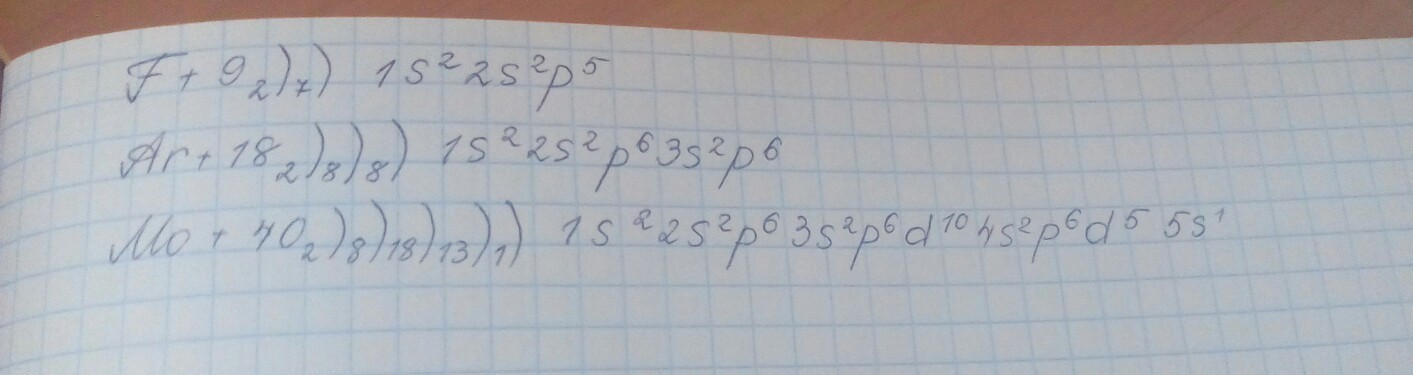 F + 9 2) 7) 1s² 2s² p⁵
Ar + 18 2) 8) 8) 1s² 2s² p⁶ 3s² p⁶
Mo + 40 2) 8) 18) 13) 1) 1s² 2s² p⁶ 3s² p⁶ d¹⁰ 4s² p⁶ d⁵ 5s¹